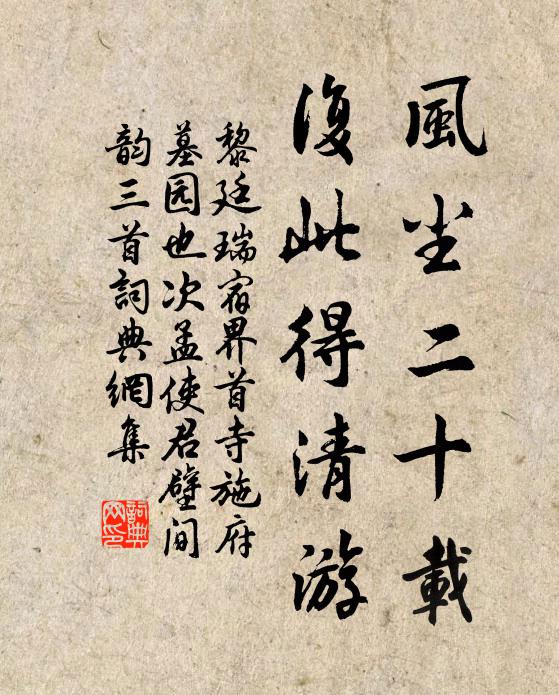 風尘二十載
復此得清游
黎廷瑞宿界首寺施府
墓园也次孟使君壁间
韵三首詞典網集
詞典網印